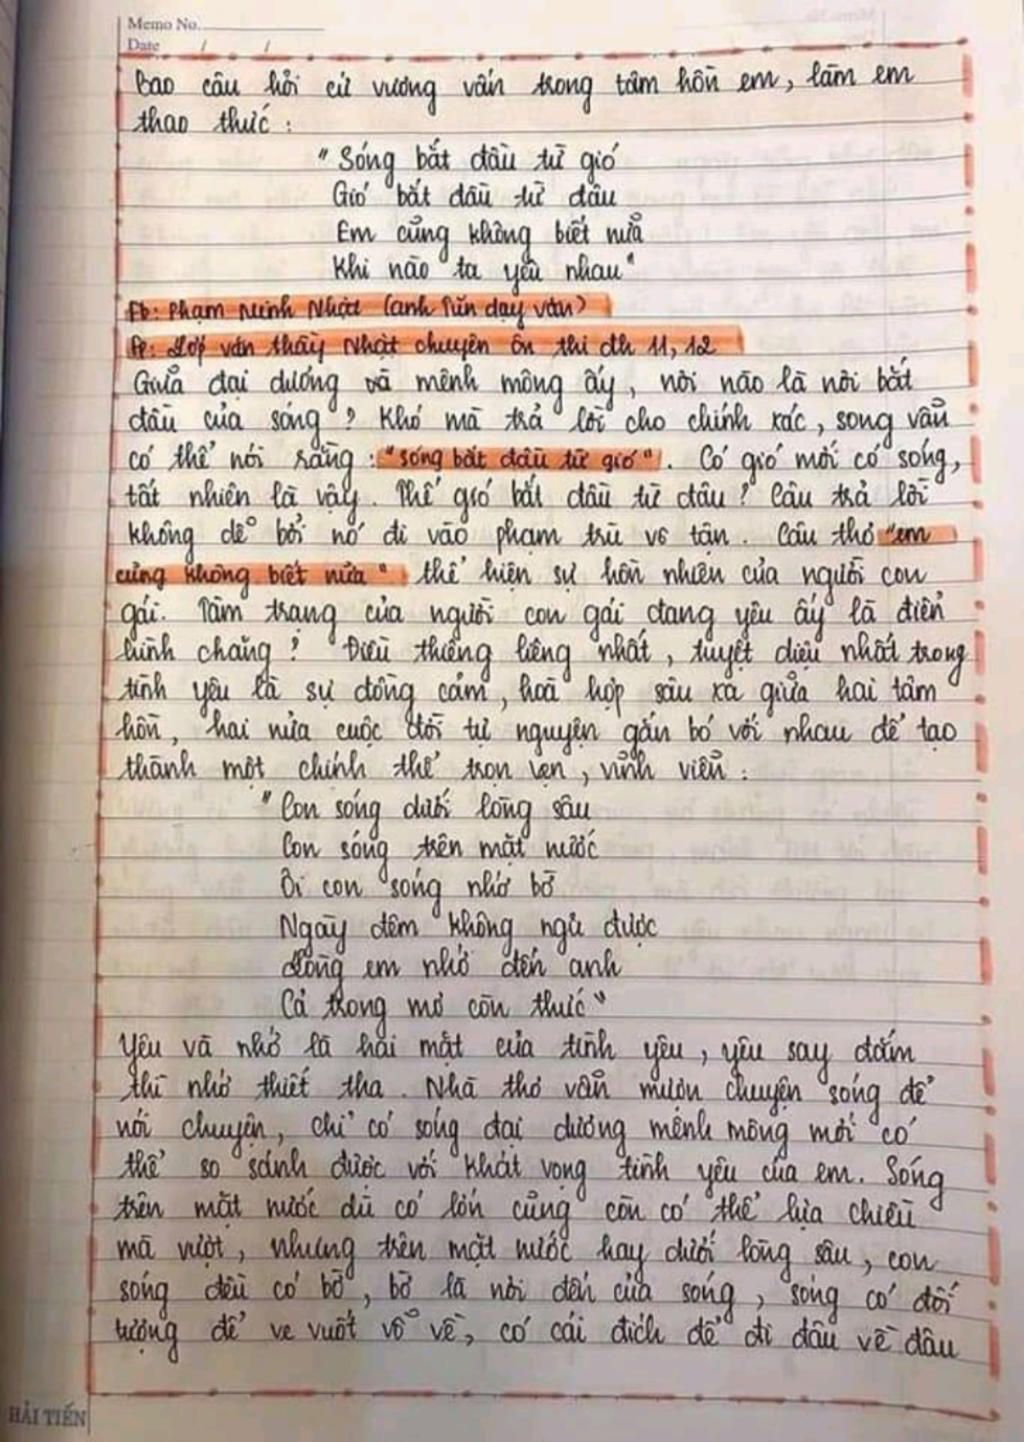 Memo No.
Date / /
Bao câu hỏi cứ vương vấn trong tâm hồn em, làm em
thao thức :
"Sóng bắt đầu từ gió
Gió bắt đầu từ đâu
Em cũng không biết nữa
Khi nào ta yêu nhau"
Fb: Phạm Minh Nhật (anh Tũn dạy văn)
Fp: Lớp văn thầy Nhật chuyên ôn thi đh 11, 12
Giữa đại dương và mênh mông ấy, nơi nào là nơi bắt
đầu của sóng ? Khó mà trả lời cho chính xác, song vẫn
có thể nói rằng : "sóng bắt đầu từ gió". Có gió mới có sóng,
tất nhiên là vậy. Thế gió bắt đầu từ đâu ? Câu trả lời
không dễ bởi nó đi vào phạm trù vô tận. Câu thơ "em
cũng không biết nữa" thể hiện sự hồn nhiên của người con
gái. Tâm trạng của người con gái đang yêu ấy là điển
hình chăng ? Điều thiêng liêng nhất, tuyệt diệu nhất trong
tình yêu là sự đồng cảm, hoà hợp sâu xa giữa hai tâm
hồn, hai nửa cuộc đời tự nguyện gắn bó với nhau để tạo
thành một chỉnh thể trọn vẹn, vĩnh viễn :
"Con sóng dưới lòng sâu
Con sóng trên mặt nước
Ôi con sóng nhớ bờ
Ngày đêm không ngủ được
Lòng em nhớ đến anh
Cả trong mơ còn thức"
Yêu và nhớ là hai mặt của tình yêu, yêu say đắm
thì nhớ thiết tha. Nhà thơ vẫn mượn chuyện sóng để
nói chuyện, chỉ có sóng đại dương mênh mông mới có
thể so sánh được với khát vọng tình yêu của em. Sóng
trên mặt nước dù có lớn cũng còn có thể lựa chiều
mà vượt, nhưng trên mặt nước hay dưới lòng sâu, con
sóng đều có bờ, bờ là nơi đến của sóng, sóng có đối
tượng để ve vuốt vỗ về, có cái đích để đi đâu về đâu
HẢI TIẾN